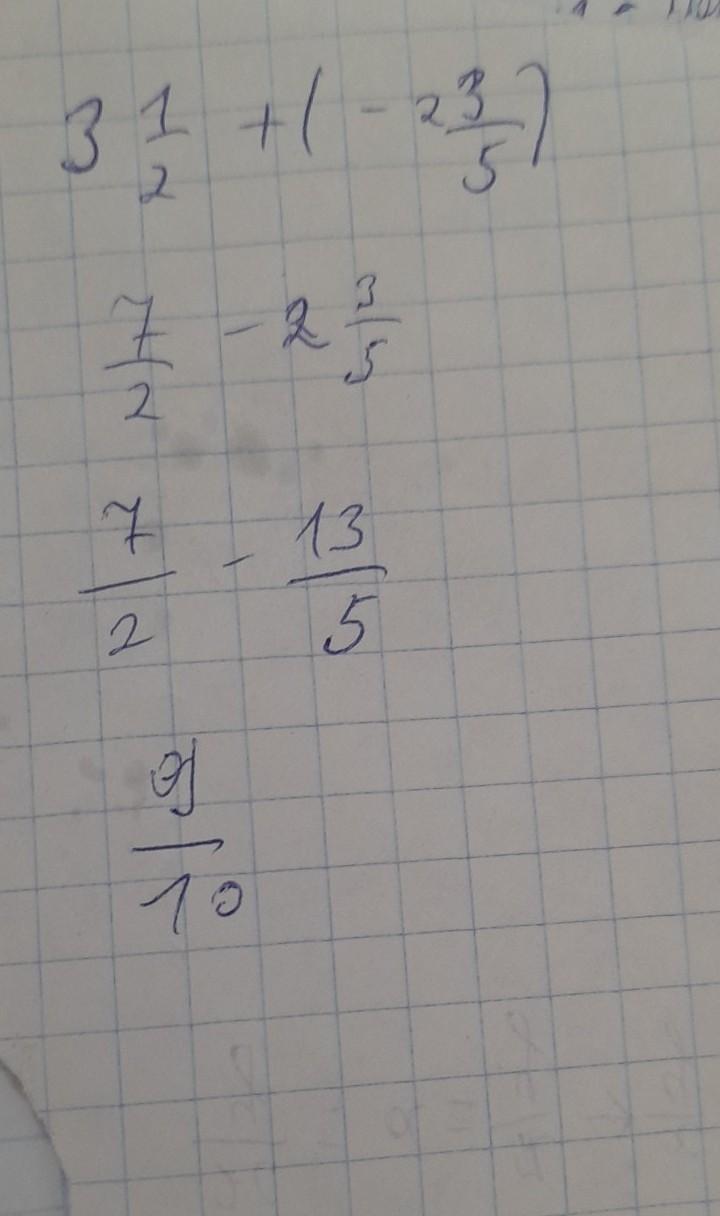 3 1/2 + ( - 2 3/5 )
7/2 - 2 3/5
7/2 - 13/5
9/10